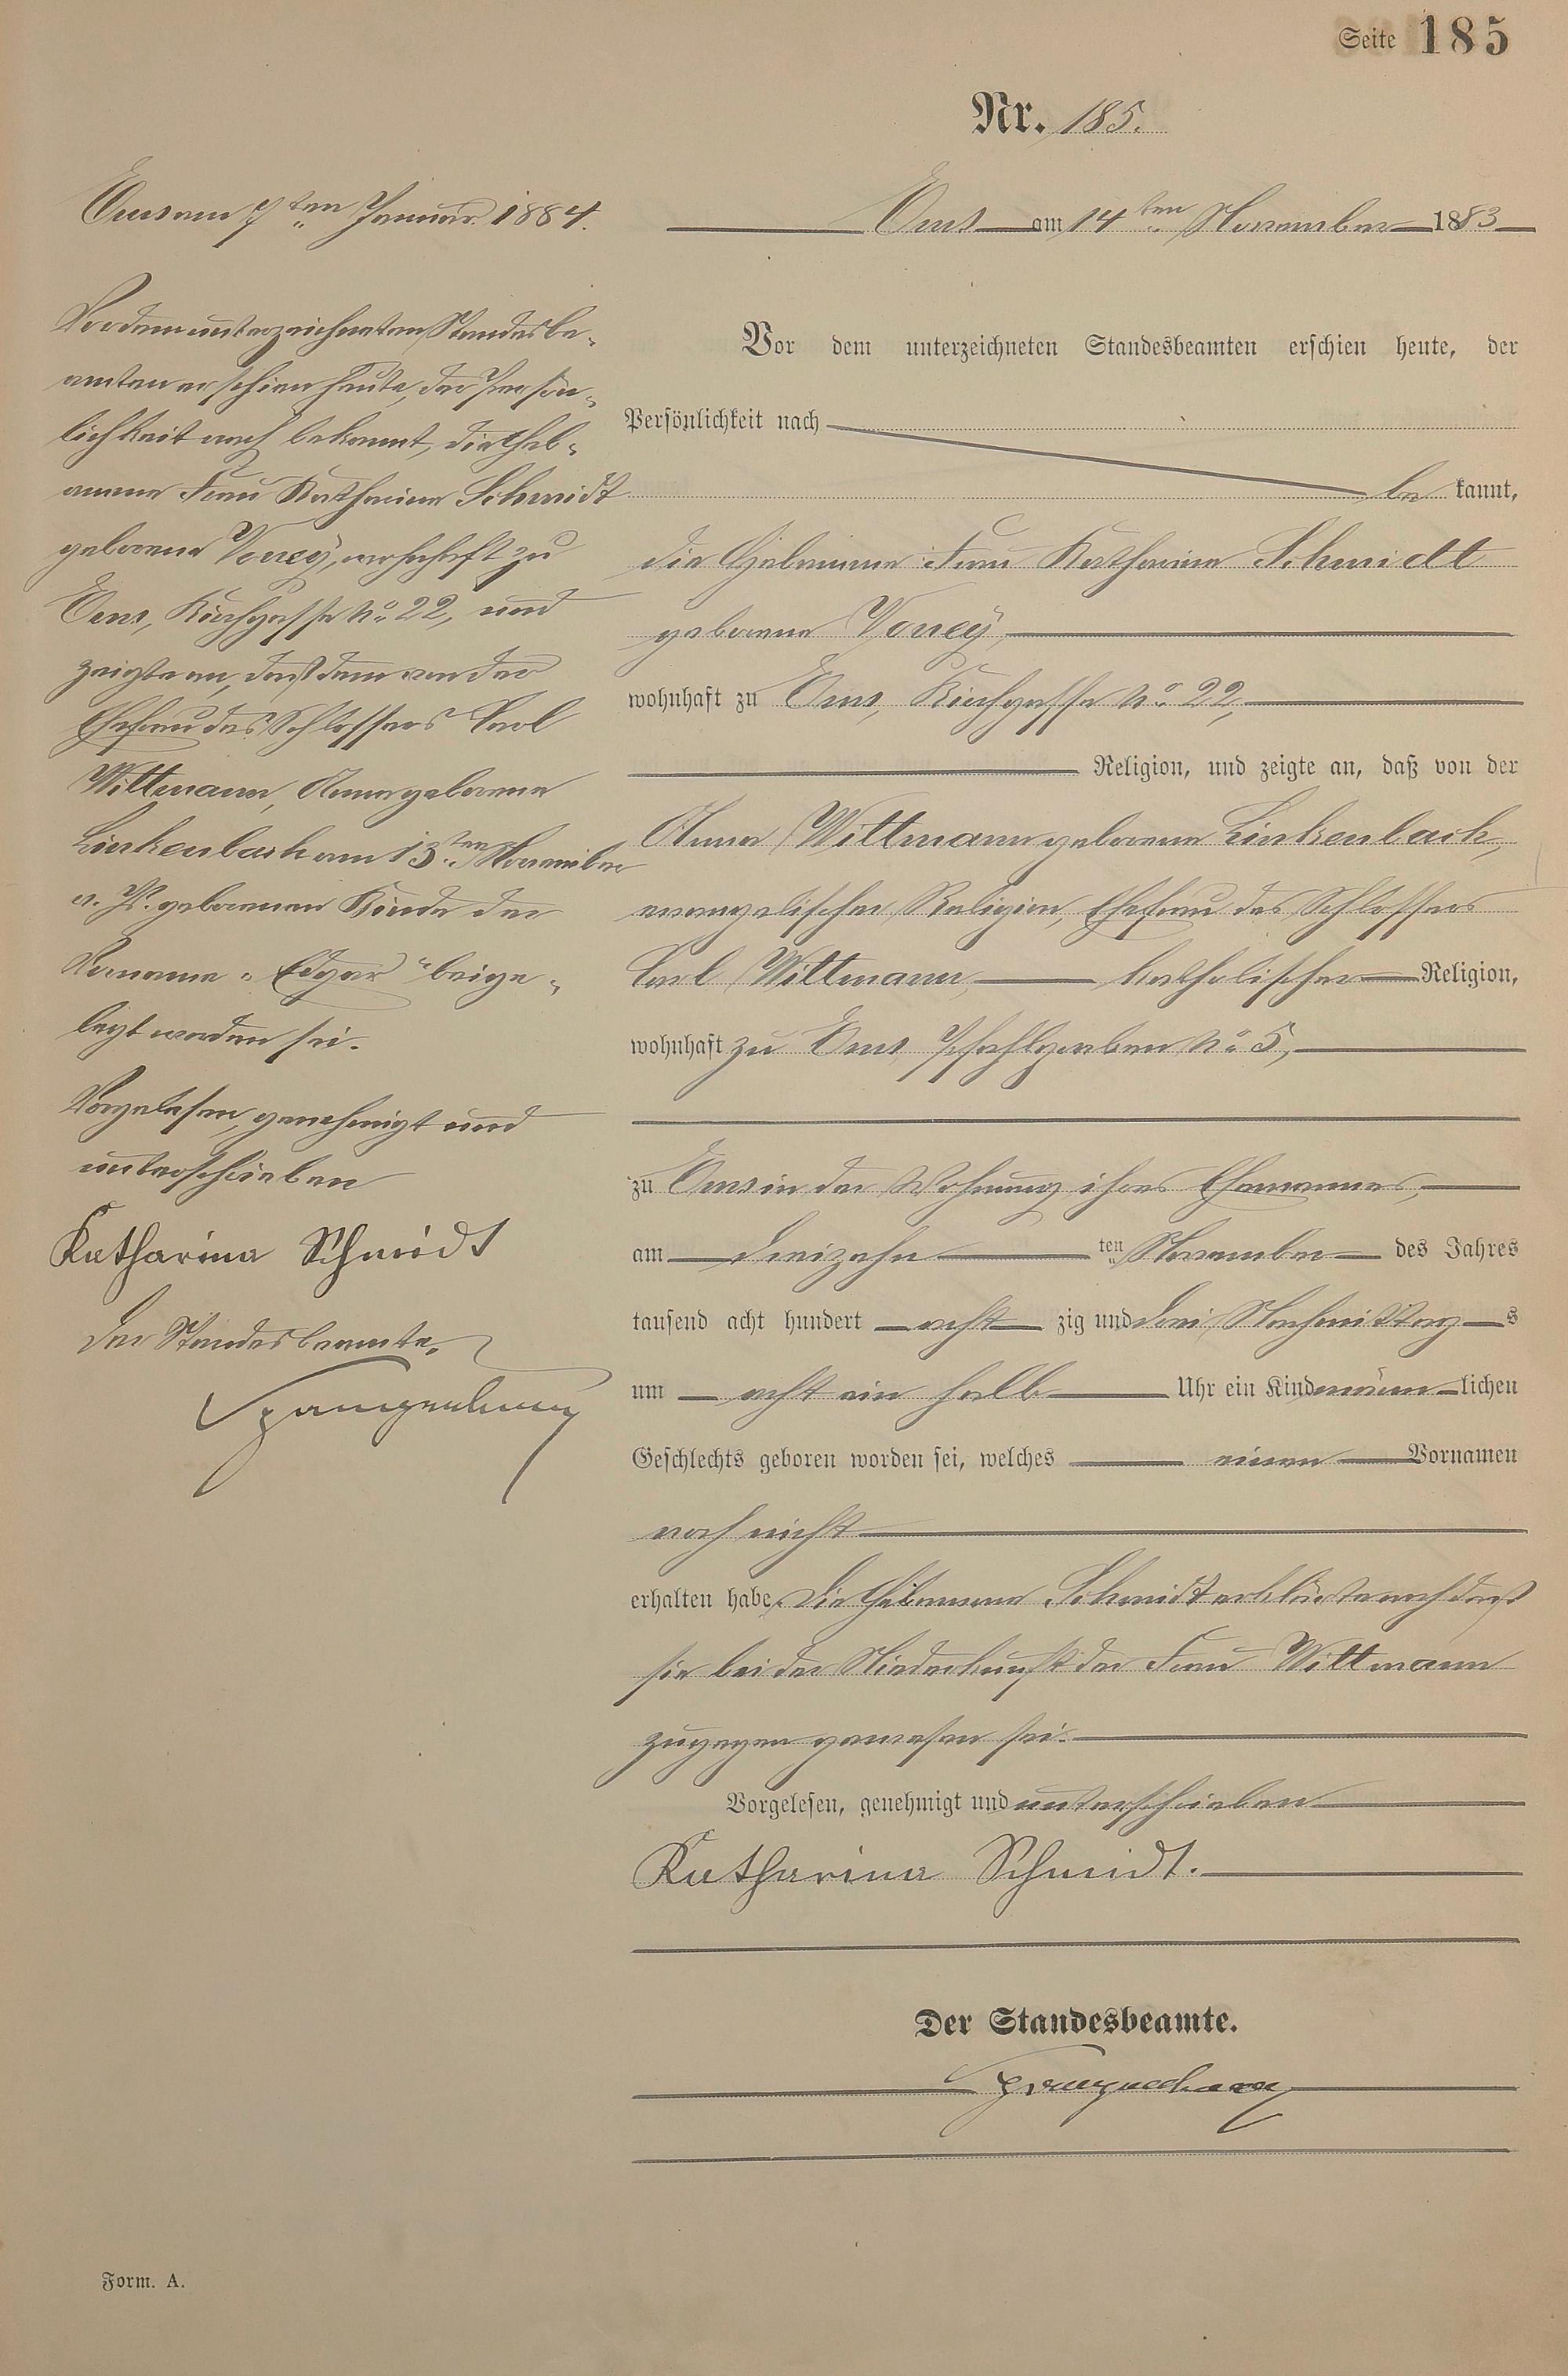 Seite 185
Nr. 185.
Ems am 14ten November 1883
Vor dem unterzeichneten Standesbeamten erschien heute, der
Persönlichkeit nach
be kannt,
die Hebamme Frau Katharina Schmidt
geborene Vorreÿ,
wohnhaft zu Ems, Kirchgasse No. 22,
Religion, und zeigte an, daß von der
Anna Wittmann geborene Linkenbach,
evangelischer Religion, Ehefrau des Schlossers
Carl Wittmann, katholischer Religion,
wohnhaft zu Ems, Pfahlgraben No. 5,
zu Ems in der Wohnung ihres Ehemannes,
am dreizehn ten November des Jahres
tausend acht hundert acht zig und drei Nachmittag s
um acht ein halb Uhr ein Kind männ lichen
Geschlechts geboren worden sei, welches einen Vornamen
noch nicht
erhalten habe. Die Hebamme Schmidt erklärte noch daß
sie bei der Niederkunft der Frau Wittmann
zugegen gewesen sei.
Vorgelesen, genehmigt und unterschrieben
Katharina Schmidt.
Der Standesbeamte.
Spangenberg
Ems am 7ten Januar 1884.
Vor dem unterzeichneten Standesbe-
amten erschien heute, der Persön-
lichkeit nach bekannt, die Heb-
amme Frau Katharina Schmidt
geborene Vorreÿ, wohnhaft zu
Ems, Kirchgasse No. 22, und
zeigte an, daß dem von der
Ehefrau des Schlossers Carl
Wittmann, Anna geborene
Linkenbach am 13ten November
v. Js. geborenen Kinde der
Vorname „Edgar" beige-
legt worden sei.
Vorgelesen, genehmigt und
unterschrieben
Katharina Schmidt
Der Standesbeamte.
Spangenberg
Form. A.